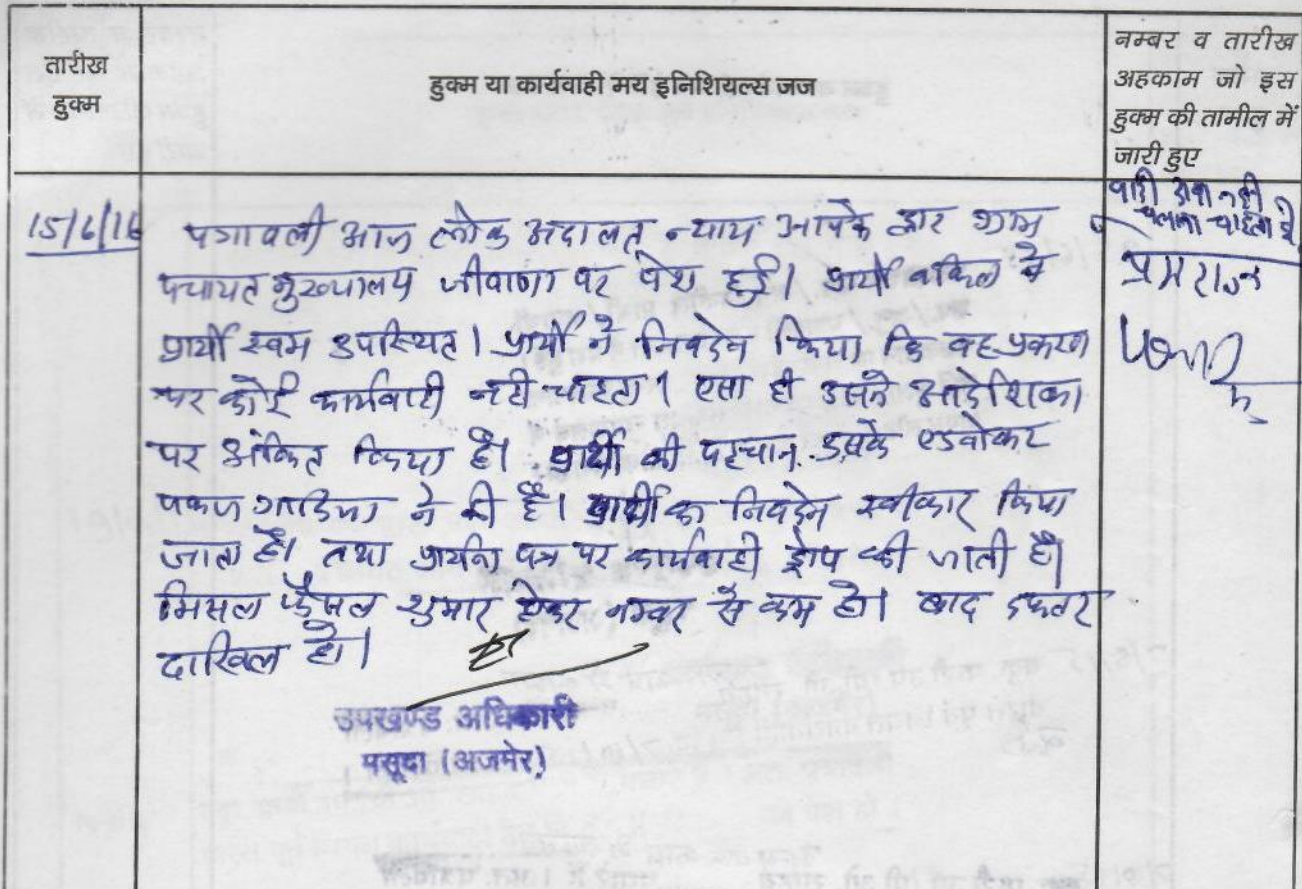 तारीख
हुक्म
हुक्म या कार्यवाही मय इनिशियल्स जज
नम्बर व तारीख
अहकाम जो इस
हुक्म की तामील में
जारी हुए
वादी दावा नही
चलाना चाहता है
प्रेमराज
15/6/16
पत्रावली आज लोक अदालत न्याय आपके द्वार ग्राम
पंचायत मुख्यालय जीवाणा पर पेश हुई। प्रार्थी वकिल व
प्रार्थी स्वयम उपस्थित। प्रार्थी ने निवेदन किया कि वह प्रकरण
पर कोई कार्यवाही नही चाहता। एसा ही उसने आदेशिका
पर अंकित किया है। प्रार्थी की पहचान उसके एडवोकट
पकज गादिया ने की है। प्रार्थी का निवेदन स्वीकार किया
जाता है। तथा प्रार्थना पत्र पर कार्यवाही ड्रोप की जाती है।
मिसल फैसल शुमार होकर नम्बर से कम हो। बाद दफ्तर
दाखिल हो।
उपखण्ड अधिकारी
मसूदा (अजमेर)